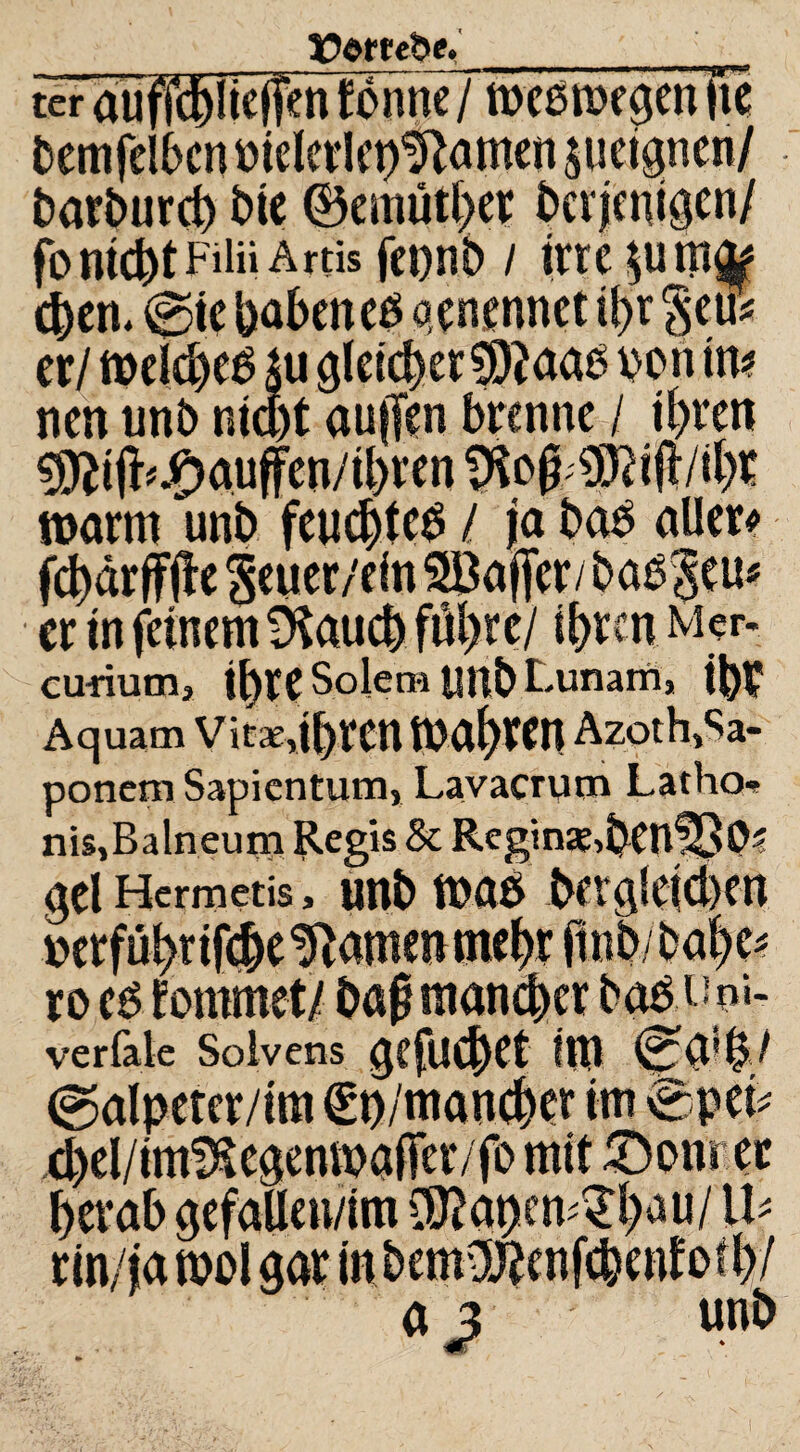 Vorrede.
ter auffschliessen könne / weswegen sie
demselben vielerley Namen zueignen/
dardurch die Gemüther derjenigen/
so nicht Filii Artis seynd / irre zu ma-
chen. Sie haben es genennet ihr Feu-
er/ welches zu gleicher Maas von in-
nen und nicht aussen brenne / ihren
Mist-Hauffen/ihren Roß-Mist/ihr
warm und feuchtes / ja das aller-
schärffste Feuer/ein Wasser/das Feu-
er in seinem Rauch führe/ ihren Mer-
curium, ihre Solem und Lunam, ihr
Aquam Vitæ,ihren wahren Azoth,Sa-
ponem Sapientum, Lavacrum Latho-
nis,Balneum Regis & Reginæ,den Vo-
gel Hermetis, und was dergleichen
verführische Namen mehr sind/dahe-
ro es kommet/ daß mancher das Uni-
versale Solvens gesuchet im Saltz/
Salpeter/im Ey/mancher im Spei-
chel/im Regenwasser/so mit Donner
herab gefallen/im Mayen-Thau/ U-
rin/ja wol gar in dem Menschenkoth/
a 3 und